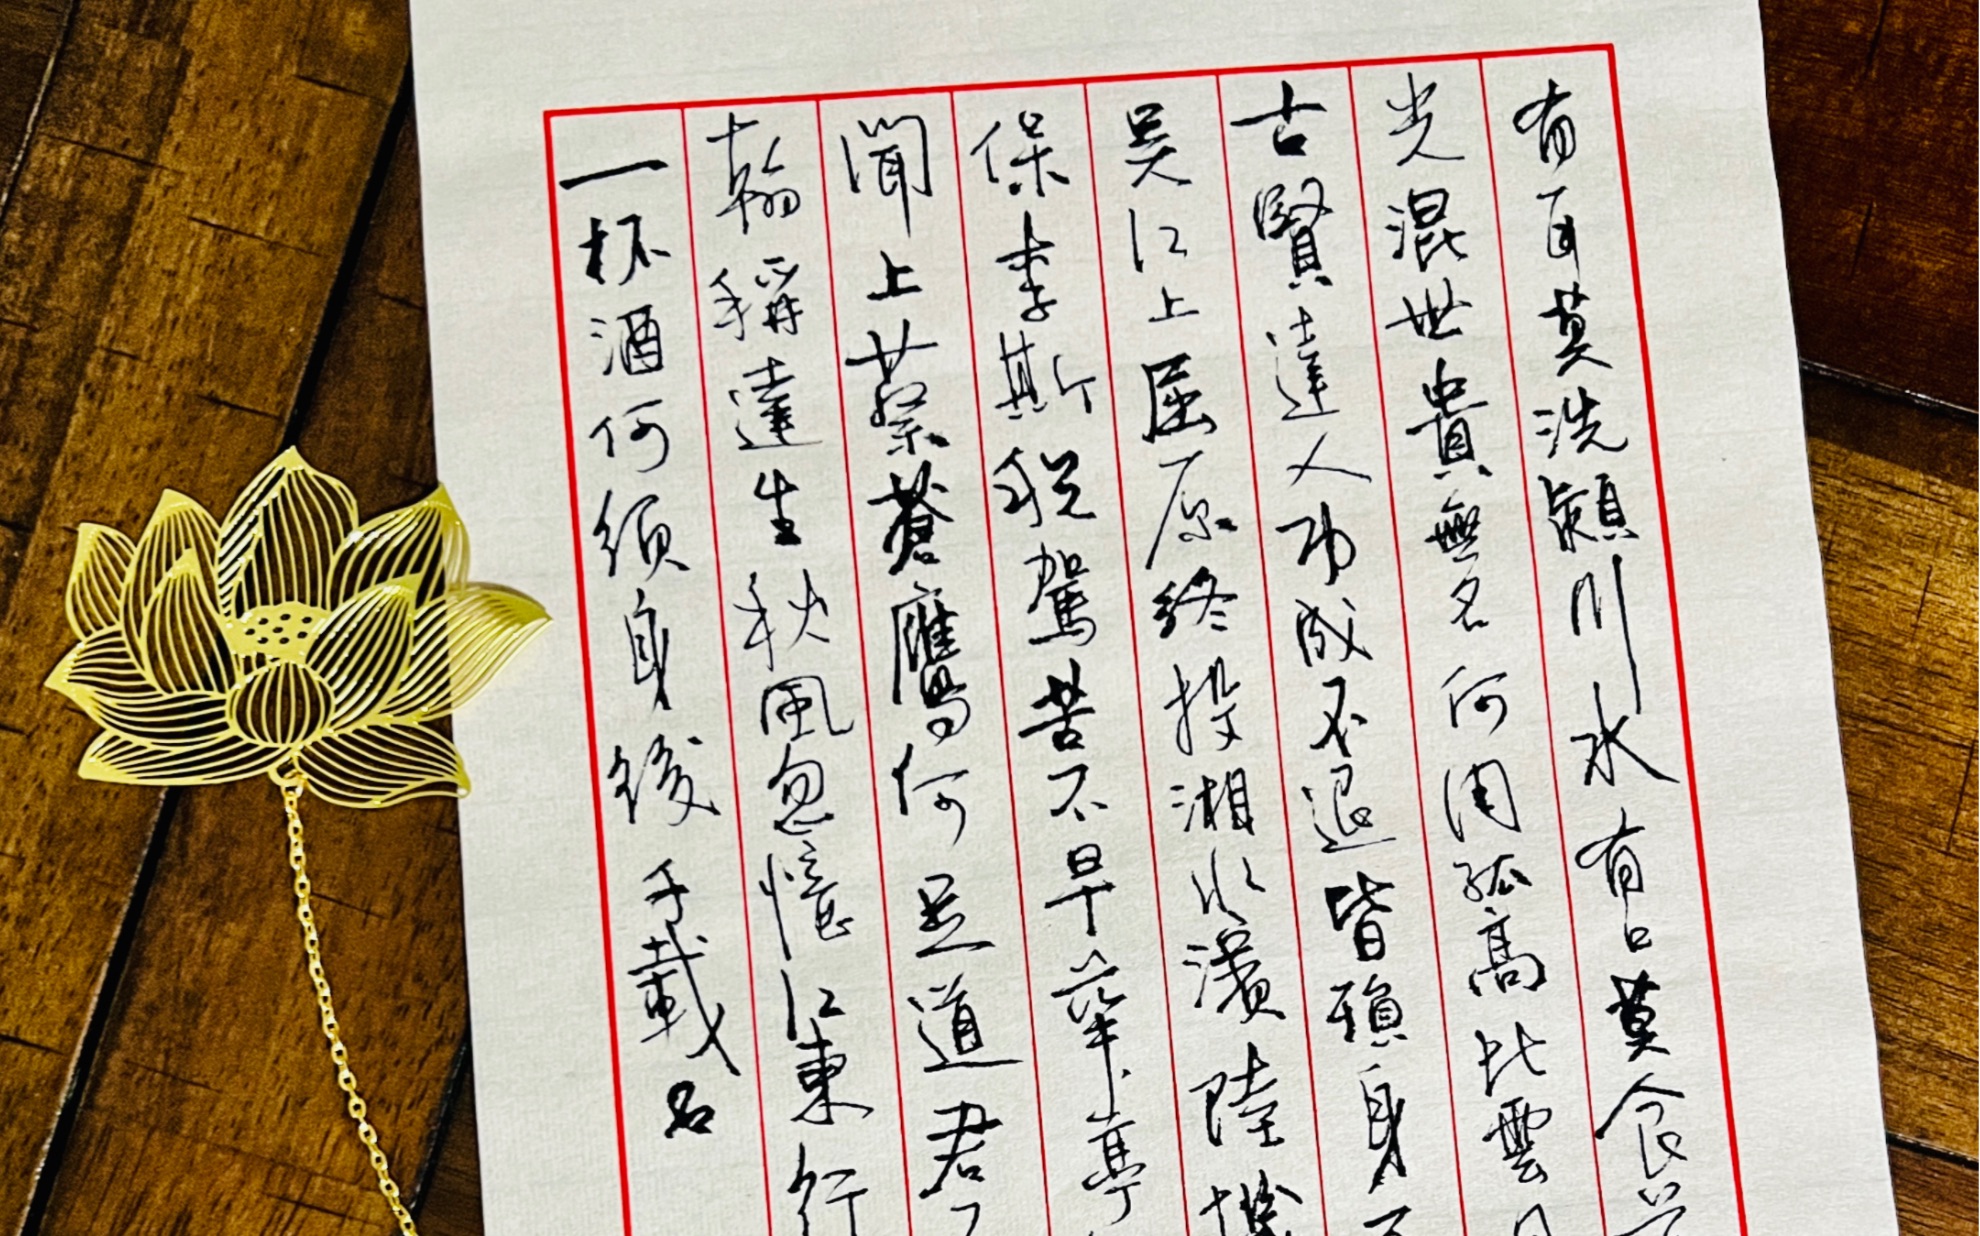 有耳莫洗潁川水有口莫食
光混世貴無名何用孤高比雲
古賢達人功成不退皆殞身
吳江上屈原終投湘水濱陸機
保李斯稅駕苦不早華亭
聞上蔡蒼鷹何足道君
翰稱達生秋風忽憶江東行
一杯酒何須身後千載名